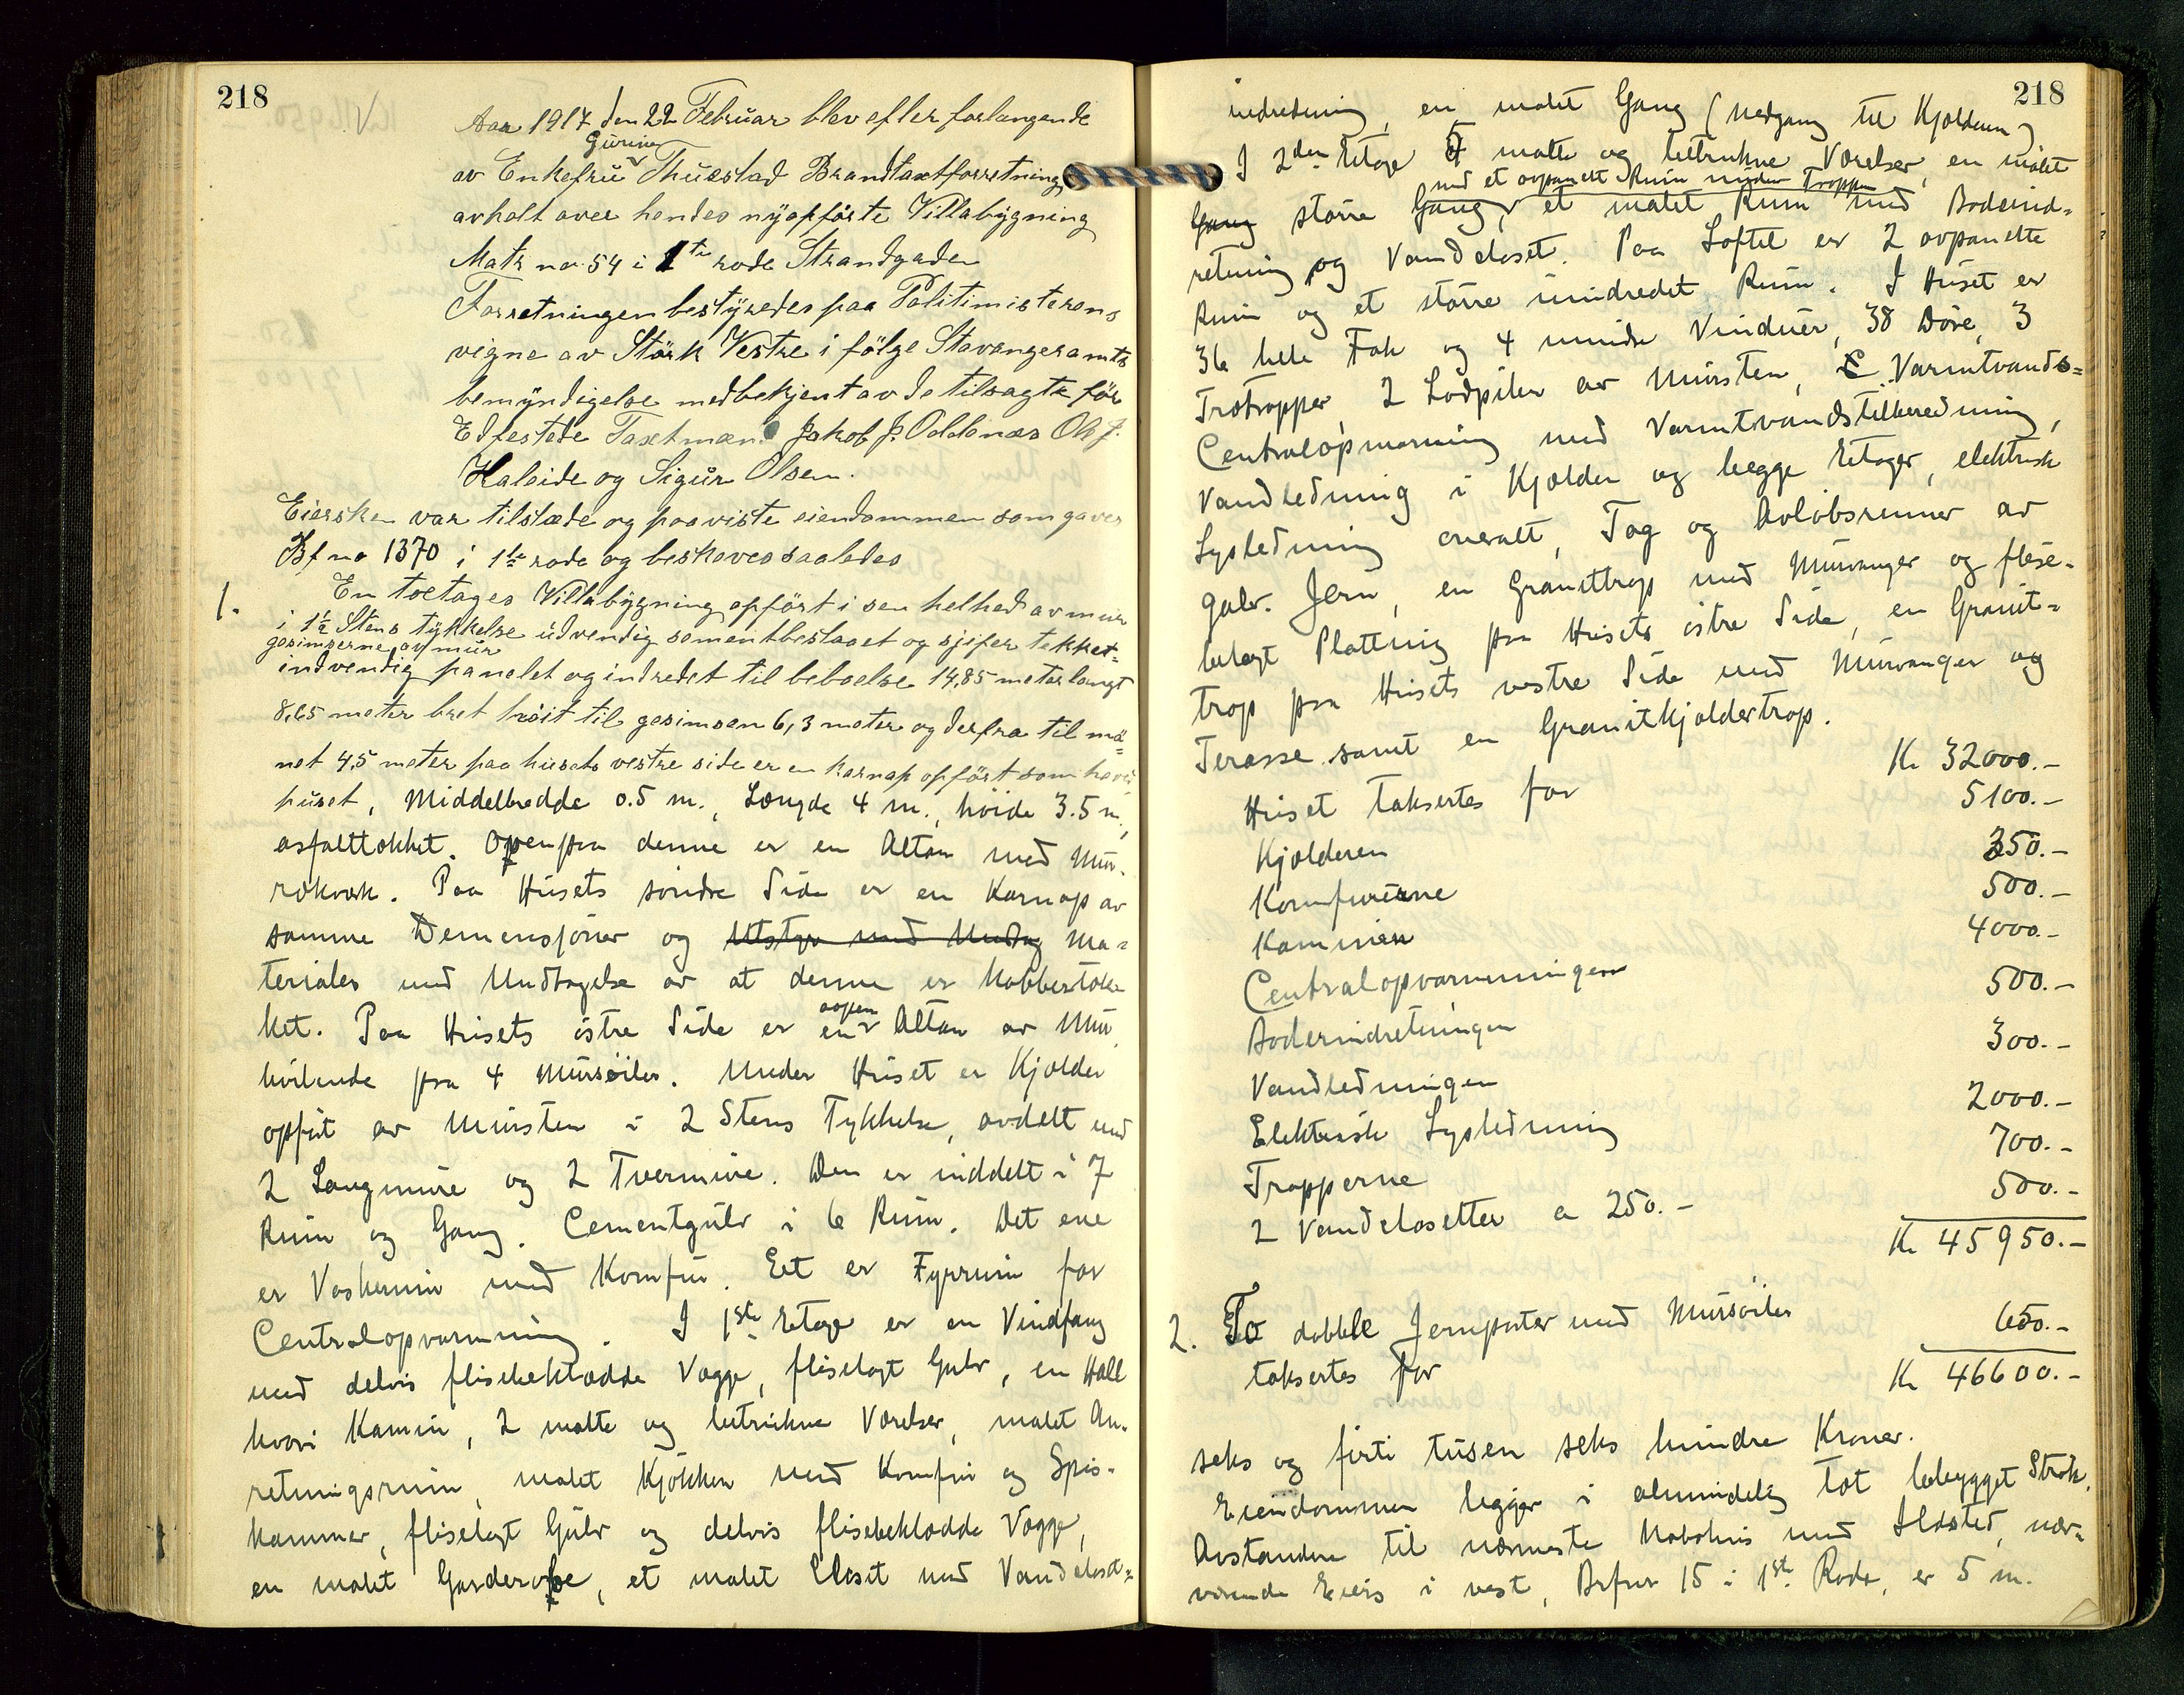 218
Aar 1917 den 22 Februar blev efter forlangende
Gurine
av Enkefru Thuestad Brandtaxtforretning
avholt over hendes nyopförte Villabygning
Matr no 54 i 1te rode Strandgaden
Forretningen bestyredes paa Politimisterens
vegne av Störk Vestre i fölge Stavanger amts
bemyndigelse med bekjent av de tilsagte för
Edfestede Taxtmænd Jakob J. Oddenæs Ole J.
Haleide og Sigur Olsen.
Eiersken var tilstæde og paaviste eiendommen som gaves
Bf no 1370 i 1te rode og beskreves saaledes
1. En toetages Villabygning opfört i sen helhed av mur
i 1½ Stens tykkelse udvendig sementbeslaaet og sjifer tekket=
gesimserne av mur
indvendig panelet og indredet til beboelse 14,85 meter langt
8,65 meter bret höit til gesimsen 6,3 meter og derfra til mö=
net 4,5 meter paa husets vestre side er en karnap opfört som hoved
huset, Middelbredde 0.5 m., Længde 4 m., höide 3.5 m.,
asfalttækket. Ovenpaa denne er en Altan med Mur-
rækværk. Paa Husets söndre Side er en Karnap av
samme Demensjöner og Utstyr med Undtag Ma=
terialer med Undtagelse av at denne er kobbertæk-
ket. Paa Husets östre Side er en Altan av Mur
aapen
hvilende paa 4 Mursöiler. Under Huset er Kjelder
opfört av Mursten i 2 Stens Tykkelse, avdelt med
2 Langmure og 2 Tvermure. Den er inddelt i 7
Rum og Gang. Cementgulv i 6 Rum. Det ene
er Vaskerum med Komfur. Eet er Fyrrum for
Centralopvarmning. I 1ste Etage er en Vindfang
med delvis flisebeklædde Vægge, fliselagt Gulv, en Hall
hvori Kamin, 2 malte og betrukne Værelser, malet An-
retningsrum, malet Kjökken med Komfur og Spis-
kammer, fliselagt Gulv og delvis flisebeklædde Vægge,
en malet Garderobe, et malet Closet med Vandclosit=
218
indredning, en malet Gang (Nedgang til Kjelderen)
I 2den Etage 5 malte og betrukne Værelser, en malet
med et avpanelt Rum under Troppen
Gang större Gang, et malet Rum med Badeind=
retning og Vandcloset. Paa Loftet er 2 avpanelte
Rum og et större uindredet Rum. I Huset er
36 hele Fak og 4 mindre Vinduer, 38 Döre, 3
Trætrapper 2 Lodpiber av Mursten, C Varmtvands=
Centralopvarmning med Varmtvandstilberedning,
Vandledning i Kjelder og begge Etager, elektrisk
Lysledning overalt, Tag og Avlöbsrenner av
galv. Jern, en Granittrap med Murvanger og flise-
belagt Plattning paa Husets östre Side, en Granit=
trap paa Husets vestre Side med Murvanger og
Terasse samt en Granitkjeldertrap.
Huset takseres for Kr 32000.-
Kjelderen 5100.-
Komfurerne 350.-
Kaminen 500.-
Centralopvarmningen 4000.-
Badeindretningen 500.-
Vandledningen 300.-
Elektrisk Lysledning 2000.-
Trapperne 700.-
2 Vandclosetter a 250.- 500.-
Kr 45950.-
2. To dobbele Jernporter med Mursöiler
takseres for 650.-
Kr 46600.-
seks og firti tusen seks hundre Kroner.
Eiendommen ligger i almindelig tæt bebygget Strök.
Avstanden til nærmeste Nabohus med Ildsted, nær=
værende Eiers i vest, Brfnr 15 i 1ste Rode, er 5 m.